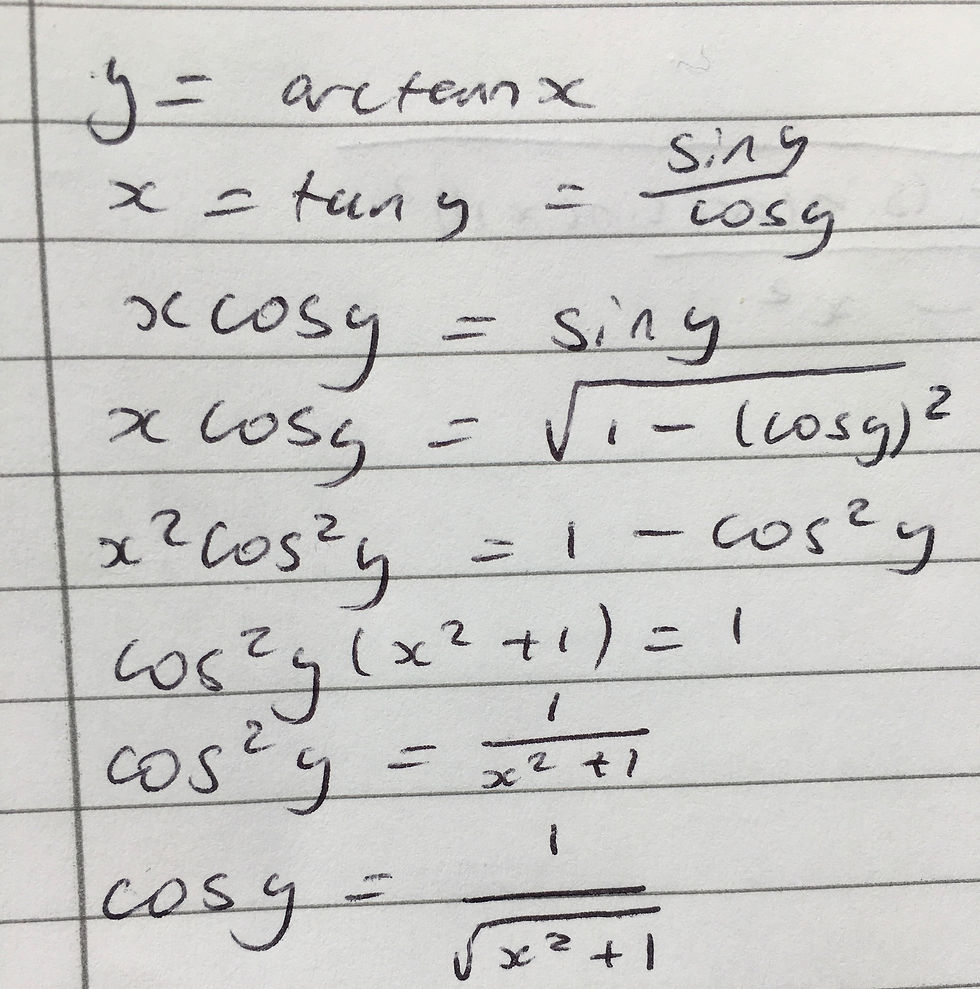 y = arctan x
x = tan y = sin y / cos y
x cos y = sin y
x cos y = √(1 − (cos y)²)
x² cos² y = 1 − cos² y
cos² y (x² + 1) = 1
cos² y = 1 / (x² + 1)
cos y = 1 / √(x² + 1)